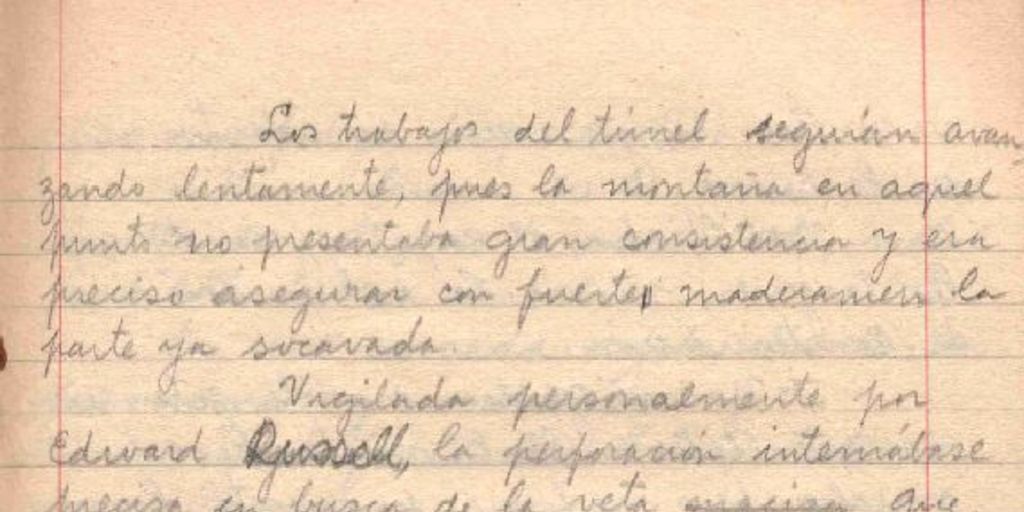 Los trabajos del túnel seguían avan-
zando lentamente, pues la montaña en aquel
punto no presentaba gran consistencia y era
preciso asegurar con fuerte maderamen la
parte ya socavada.
Vigilada personalmente por
Edward Russell, la perforación internábase
precisa en busca de la veta que